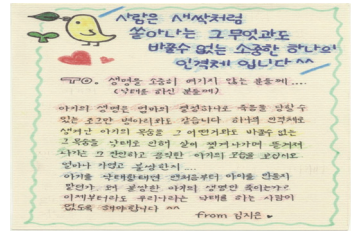 사람은 새싹처럼
쏟아나는 그 무엇과도
바꿀수 없는 소중한 하나의
인격체 입니다 ^^
TO. 생명을 소중히 여기지 않는 분들께....
(낙태를 하신 분들께)
아기의 생명은 엄마의 결정하나로 죽음을 당할수
있는 조그만 병아리와도 같습니다 하나의 인격체로
생겨난 아기의 목숨을 그 어떤거와도 바꿀수 없는
그 목숨을 낙태로 인해 살이 찢겨나가며 뜯겨져
나가는 그 잔인하고 끔찍한 아기의 모습을 보셨어요
얼마나 가엾고 불쌍한지....
아기를 낙태할태면 아기를 만들지
말던가. 왜 불쌍한 아기의 생명만 죽이는가?
이제부터라도 우리나라는 낙태를 하는 사람이
없도록 해야합니다 ^^
from 김지은